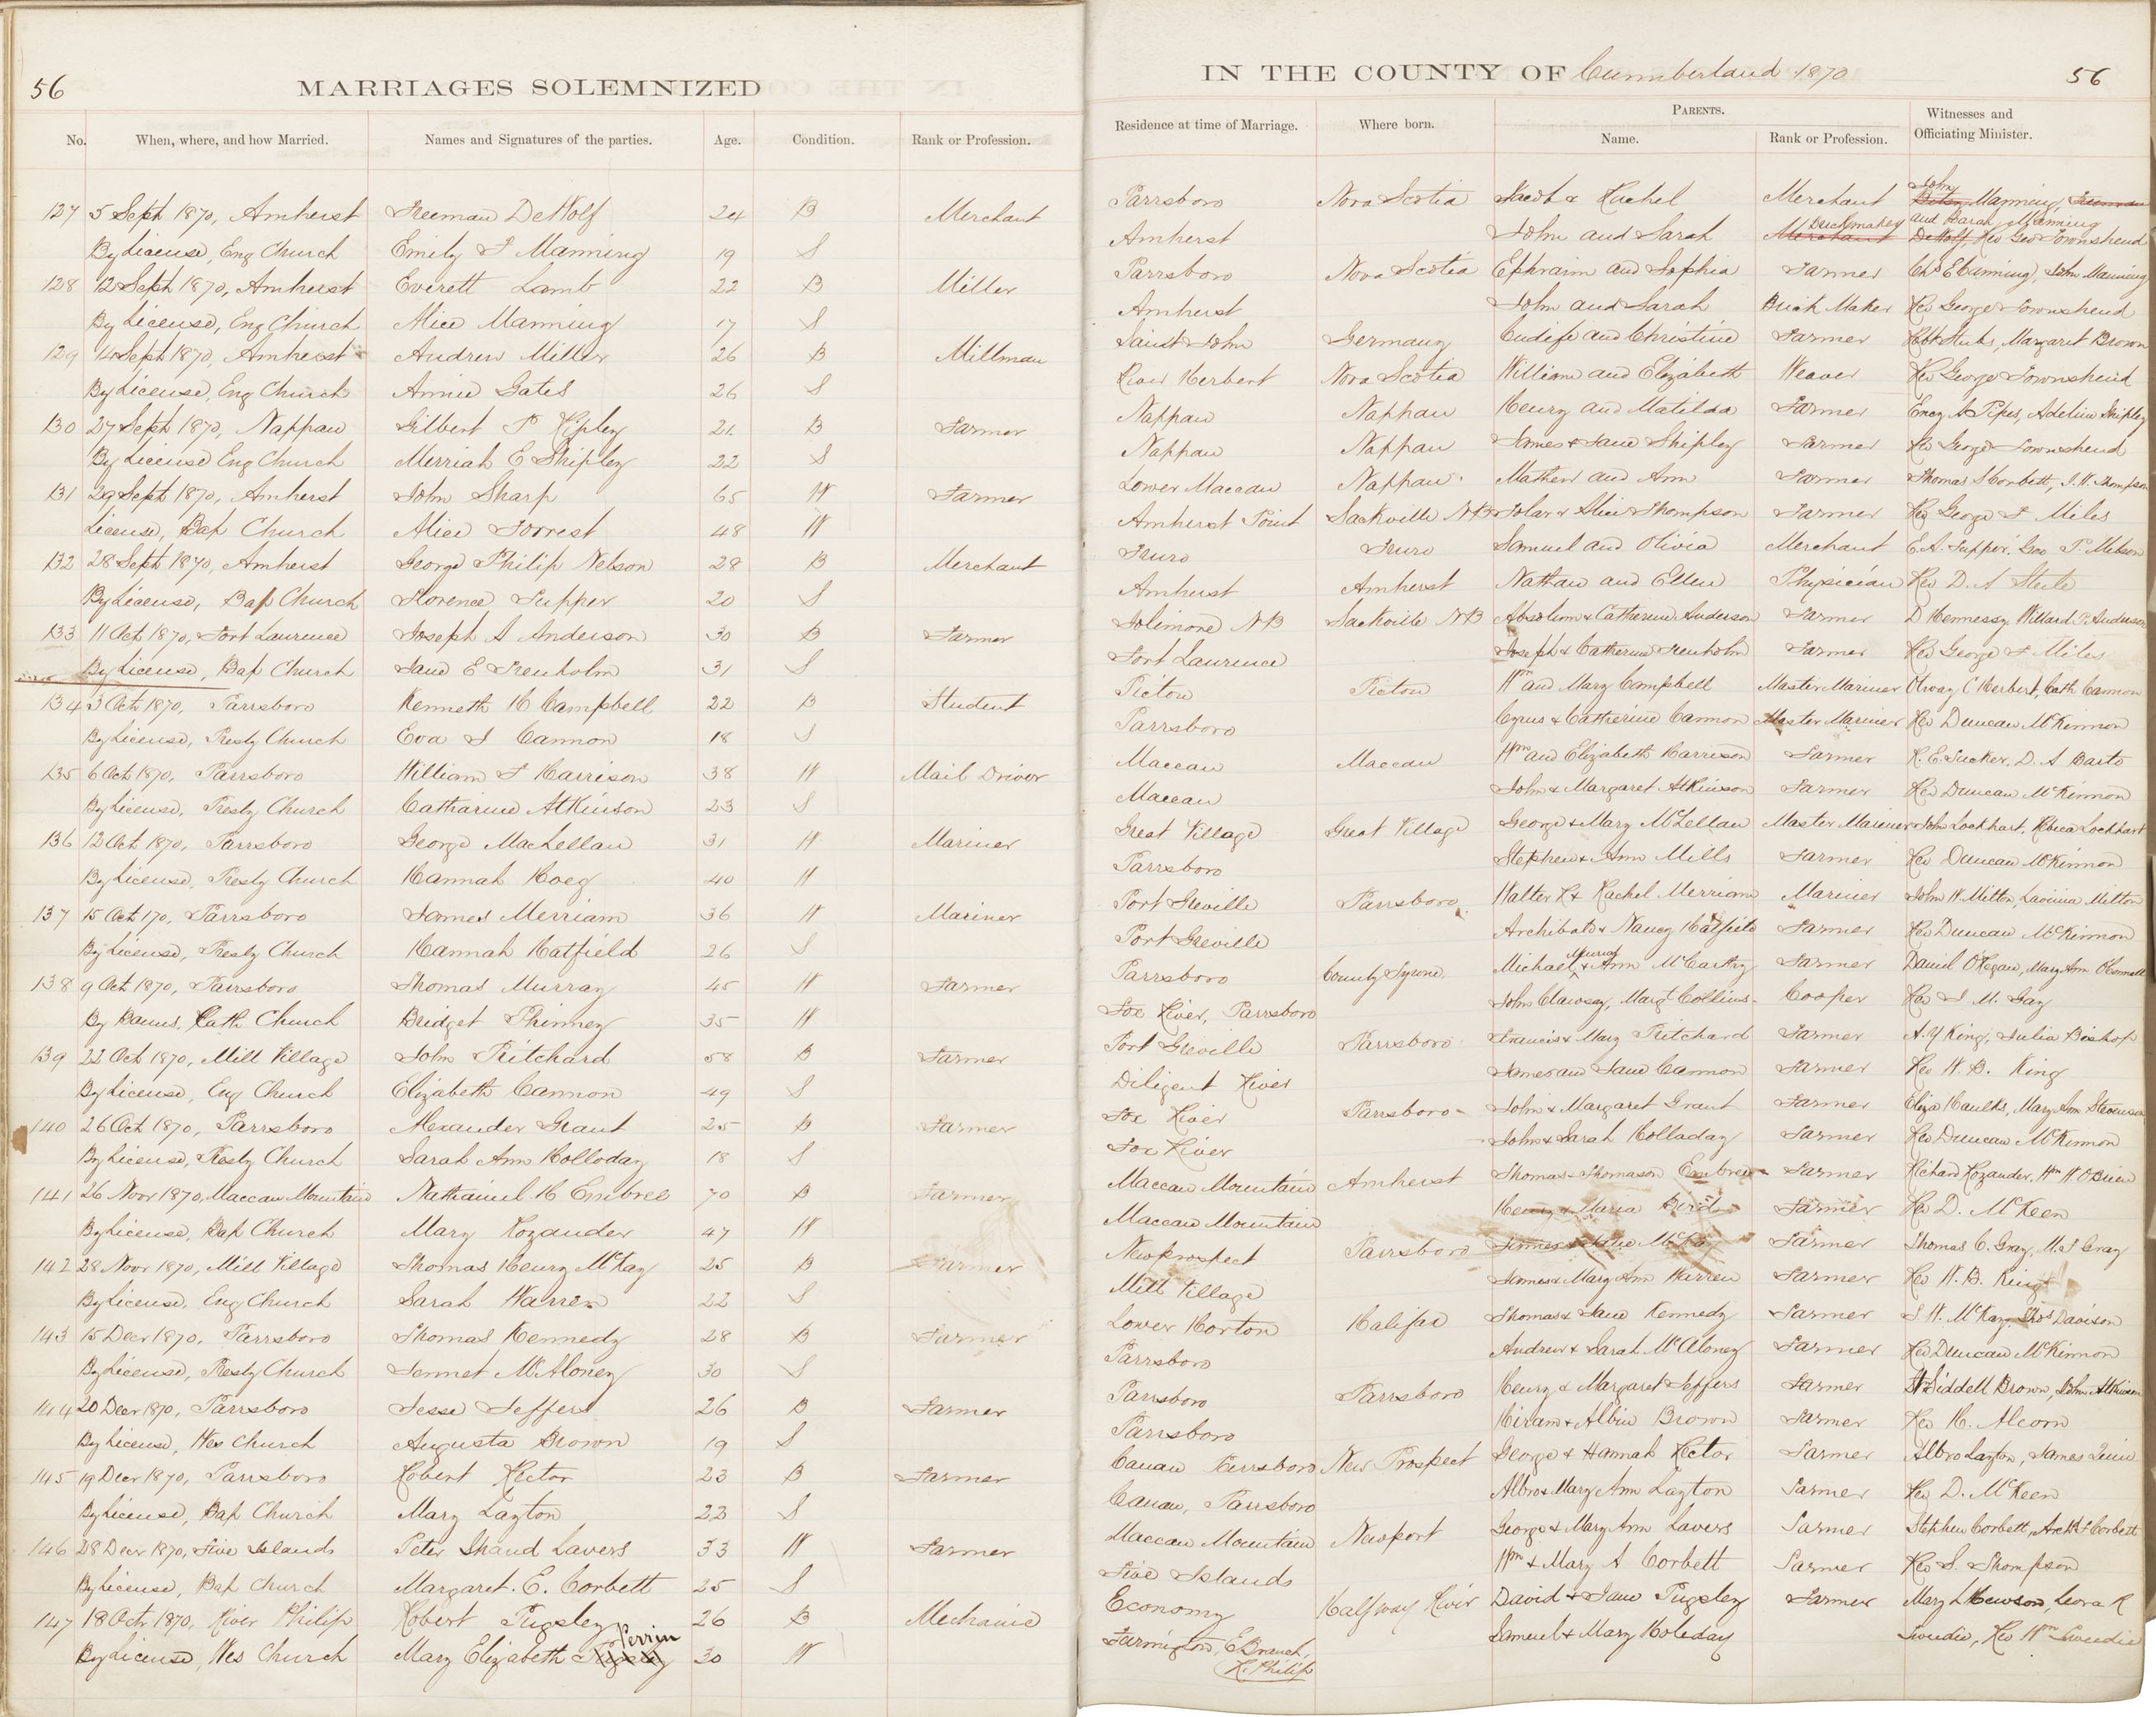 56
MARRIAGES SOLEMNIZED
No. When, where, and how Married. Names and Signatures of the parties. Age. Condition. Rank or Profession.
127 5 Sept 1870, Amherst Freeman DeWolf 24 B Merchant
By License, Eng Church Emily J Manning 19 S
128 12 Sept 1870, Amherst Everett Lamb 22 B Miller
By License, Eng Church Alice Manning 17 S
129 14 Sept 1870, Amherst Andrew Miller 26 B Millman
By License, Eng Church Annie Gates 26 S
130 27 Sept 1870, Nappan Gilbert P Ripley 21 B Farmer
By License Eng Church Merriah E Shipley 22 S
131 29 Sept 1870, Amherst John Sharp 65 W Farmer
License, Bap Church Alice Forrest 48 W
132 28 Sept 1870, Amherst George Philip Nelson 28 B Merchant
By License, Bap Church Florence Tupper 20 S
133 11 Oct 1870, Fort Laurence Joseph A Anderson 30 B Farmer
By License, Bap Church Jane E Trenholm 31 S
134 3 Oct 1870, Parrsboro Kenneth H Campbell 22 B Student
By License, Presby Church Eva J Cannon 18 S
135 6 Oct 1870, Parrsboro William F Harrison 38 W Mail Driver
By License, Presby Church Catharine Atkinson 23 S
136 12 Oct 1870, Parrsboro George MacLellan 31 W Mariner
By License, Presby Church Hannah Hoeg 40 W
137 15 Oct 170, Parrsboro James Merriam 36 W Mariner
By License, Presby Church Hannah Hatfield 26 S
138 9 Oct 1870, Parrsboro Thomas Murray 45 W Farmer
By Banns, Cath Church Bridget Phinney 35 W
139 22 Oct 1870, Mill Village John Pritchard 58 B Farmer
By License, Eng Church Elizabeth Cannon 49 S
140 26 Oct 1870, Parrsboro Alexander Grant 25 B Farmer
By License, Presby Church Sarah Ann Holloday 18 S
141 26 Novr 1870, Maccan Mountain Nathaniel H Embree 70 B Farmer
By License, Bap Church Mary Rozander 47 W
142 28 Novr 1870, Mill Village Thomas Henry McKay 25 B Farmer
By License, Eng Church Sarah Warren 22 S
143 15 Decr 1870, Parrsboro Thomas Kennedy 28 B Farmer
By License, Presby Church Jennet McAloney 30 S
144 20 Decr 1870, Parrsboro Jesse Jeffers 26 B Farmer
By License, Wes Church Augusta Brown 19 S
145 19 Decr 1870, Parrsboro Robert Rector 23 B Farmer
By License, Bap Church Mary Layton 23 S
146 28 Decr 1870, Five Islands Peter Shand Lavers 33 W Farmer
By License, Bap Church Margaret. E. Corbett 25 S
147 18 Octr 1870, River Philip Robert Pugsley 26 B Mechanic
Perrin
By License, Wes Church Mary Elizabeth Pugsley 30 W
IN THE COUNTY OF Cumberland 1870 56
Residence at time of Marriage. Where born. PARENTS. Name. Rank or Profession. Witnesses and Officiating Minister.
John
Parrsboro Nova Scotia Jacob & Rachel Merchant Manning, Freeman
Brickmaker and Sarah Manning
Amherst John and Sarah Merchant DeWolf, Rev Geo Townshend
Parrsboro Nova Scotia Ephraim and Sophia Farmer Chs E Cunning, John Manning
Amherst John and Sarah Brick Maker Rev George Townshend
Saint John Germany and Christine Farmer Margaret Brown
River Herbert Nova Scotia William and Elizabeth Weaver Rev George Townshend
Nappan Nappan Henry and Matilda Farmer A Pipes, Adeline Shipley
Nappan Nappan James & Jane Shipley Farmer Rev George Townshend
Lower Maccan Nappan Mathew and Ann Farmer Thomas S Corbett, J. W. Thompson
Amherst Point Sackville NB & Alice Thompson Farmer Rev George F Miles
Truro Truro Samuel and Olivia Merchant E. A. Tupper, Geo P. Nelson
Amherst Amherst Nathan and Ellen Physician Rev D. A Steele
Jolimore NB Sackville NB Absolum & Catherine Anderson Farmer D Hennessy, Willard P. Anderson
Fort Laurence Joseph & Catherine Trenholm Farmer Rev George F Miles
Pictou Pictou Wm and Mary Campbell Master Mariner Otway C Herbert, Cath Cannon
Parrsboro Cyrus & Catherine Cannon Master Mariner Rev Duncan McKinnon
Maccan Maccan Wm and Elizabeth Harrison Farmer R. E. Tucker, D. A Barto
Maccan John & Margaret Atkinson Farmer Rev Duncan McKinnon
Great Village Great Village George & Mary McLellan Master Mariner John Lockhart, Rebeca Lockhart
Parrsboro Stephen & Ann Mills Farmer Rev Duncan McKinnon
Port Greville Parrsboro Walter R & Rachel Merriam Mariner John W. Mitton, Lavinia Mitton
Port Greville Archibald & Nancy Hatfield Farmer Rev Duncan McKinnon
Murray
Parrsboro County Tyrone Michael & Ann McCarthy Farmer Daniel O'Regan, Mary Ann O'Connell
Fox River, Parrsboro John Clawsey, Margt Collins Cooper Rev J M. Gay
Port Greville Parrsboro Francis & Mary Pritchard Farmer A. Y King, Julia Bishop
Diligent River James and Jane Cannon Farmer Rev W. B. King
Fox River Parrsboro John & Margaret Grant Farmer Eliza Haulks, Mary Ann Stevenson
Fox River John & Sarah Holladay Farmer Rev Duncan McKinnon
Maccan Mountain Amherst Thomas & Thomason Embree Farmer Richard Rozander, Wm W. OBrien
Maccan Mountain Henry & Maria Bird Farmer Rev D. McKeen
Newprospect Parrsboro James & Jane McKay Farmer Thomas C. Gray, M. J Gray
Mill Village James & Mary Ann Warren Farmer Rev W. B. King
Lower Horton Halifax Thomas & Jane Kennedy Farmer J W. McKay, Thos Davison
Parrsboro Andrew & Sarah McAloney Farmer Rev Duncan McKinnon
Parrsboro Parrsboro Henry & Margaret Jeffers Farmer Siddell Brown, John Atkinson
Parrsboro Hiram & Albin Brown Farmer Rev H. Alcorn
Canaan Parrsboro New Prospect George & Hannah Rector Farmer Albro Layton, James
Canaan, Parrsboro Albro & Mary Ann Layton Farmer Rev D. McKeen
Maccan Mountain Newport George & Mary Ann Lavers Farmer Stephen Corbett, Archd S Corbett
Five Islands Wm & Mary A Corbett Farmer Rev S. Thompson
Economy Halfway River David & Jane Pugsley Farmer Mary L Hewson, Leora R
Farmington, E. Branch, Samuel & Mary Holeday Tweedie, Rev Wm Tweedie
R. Philip